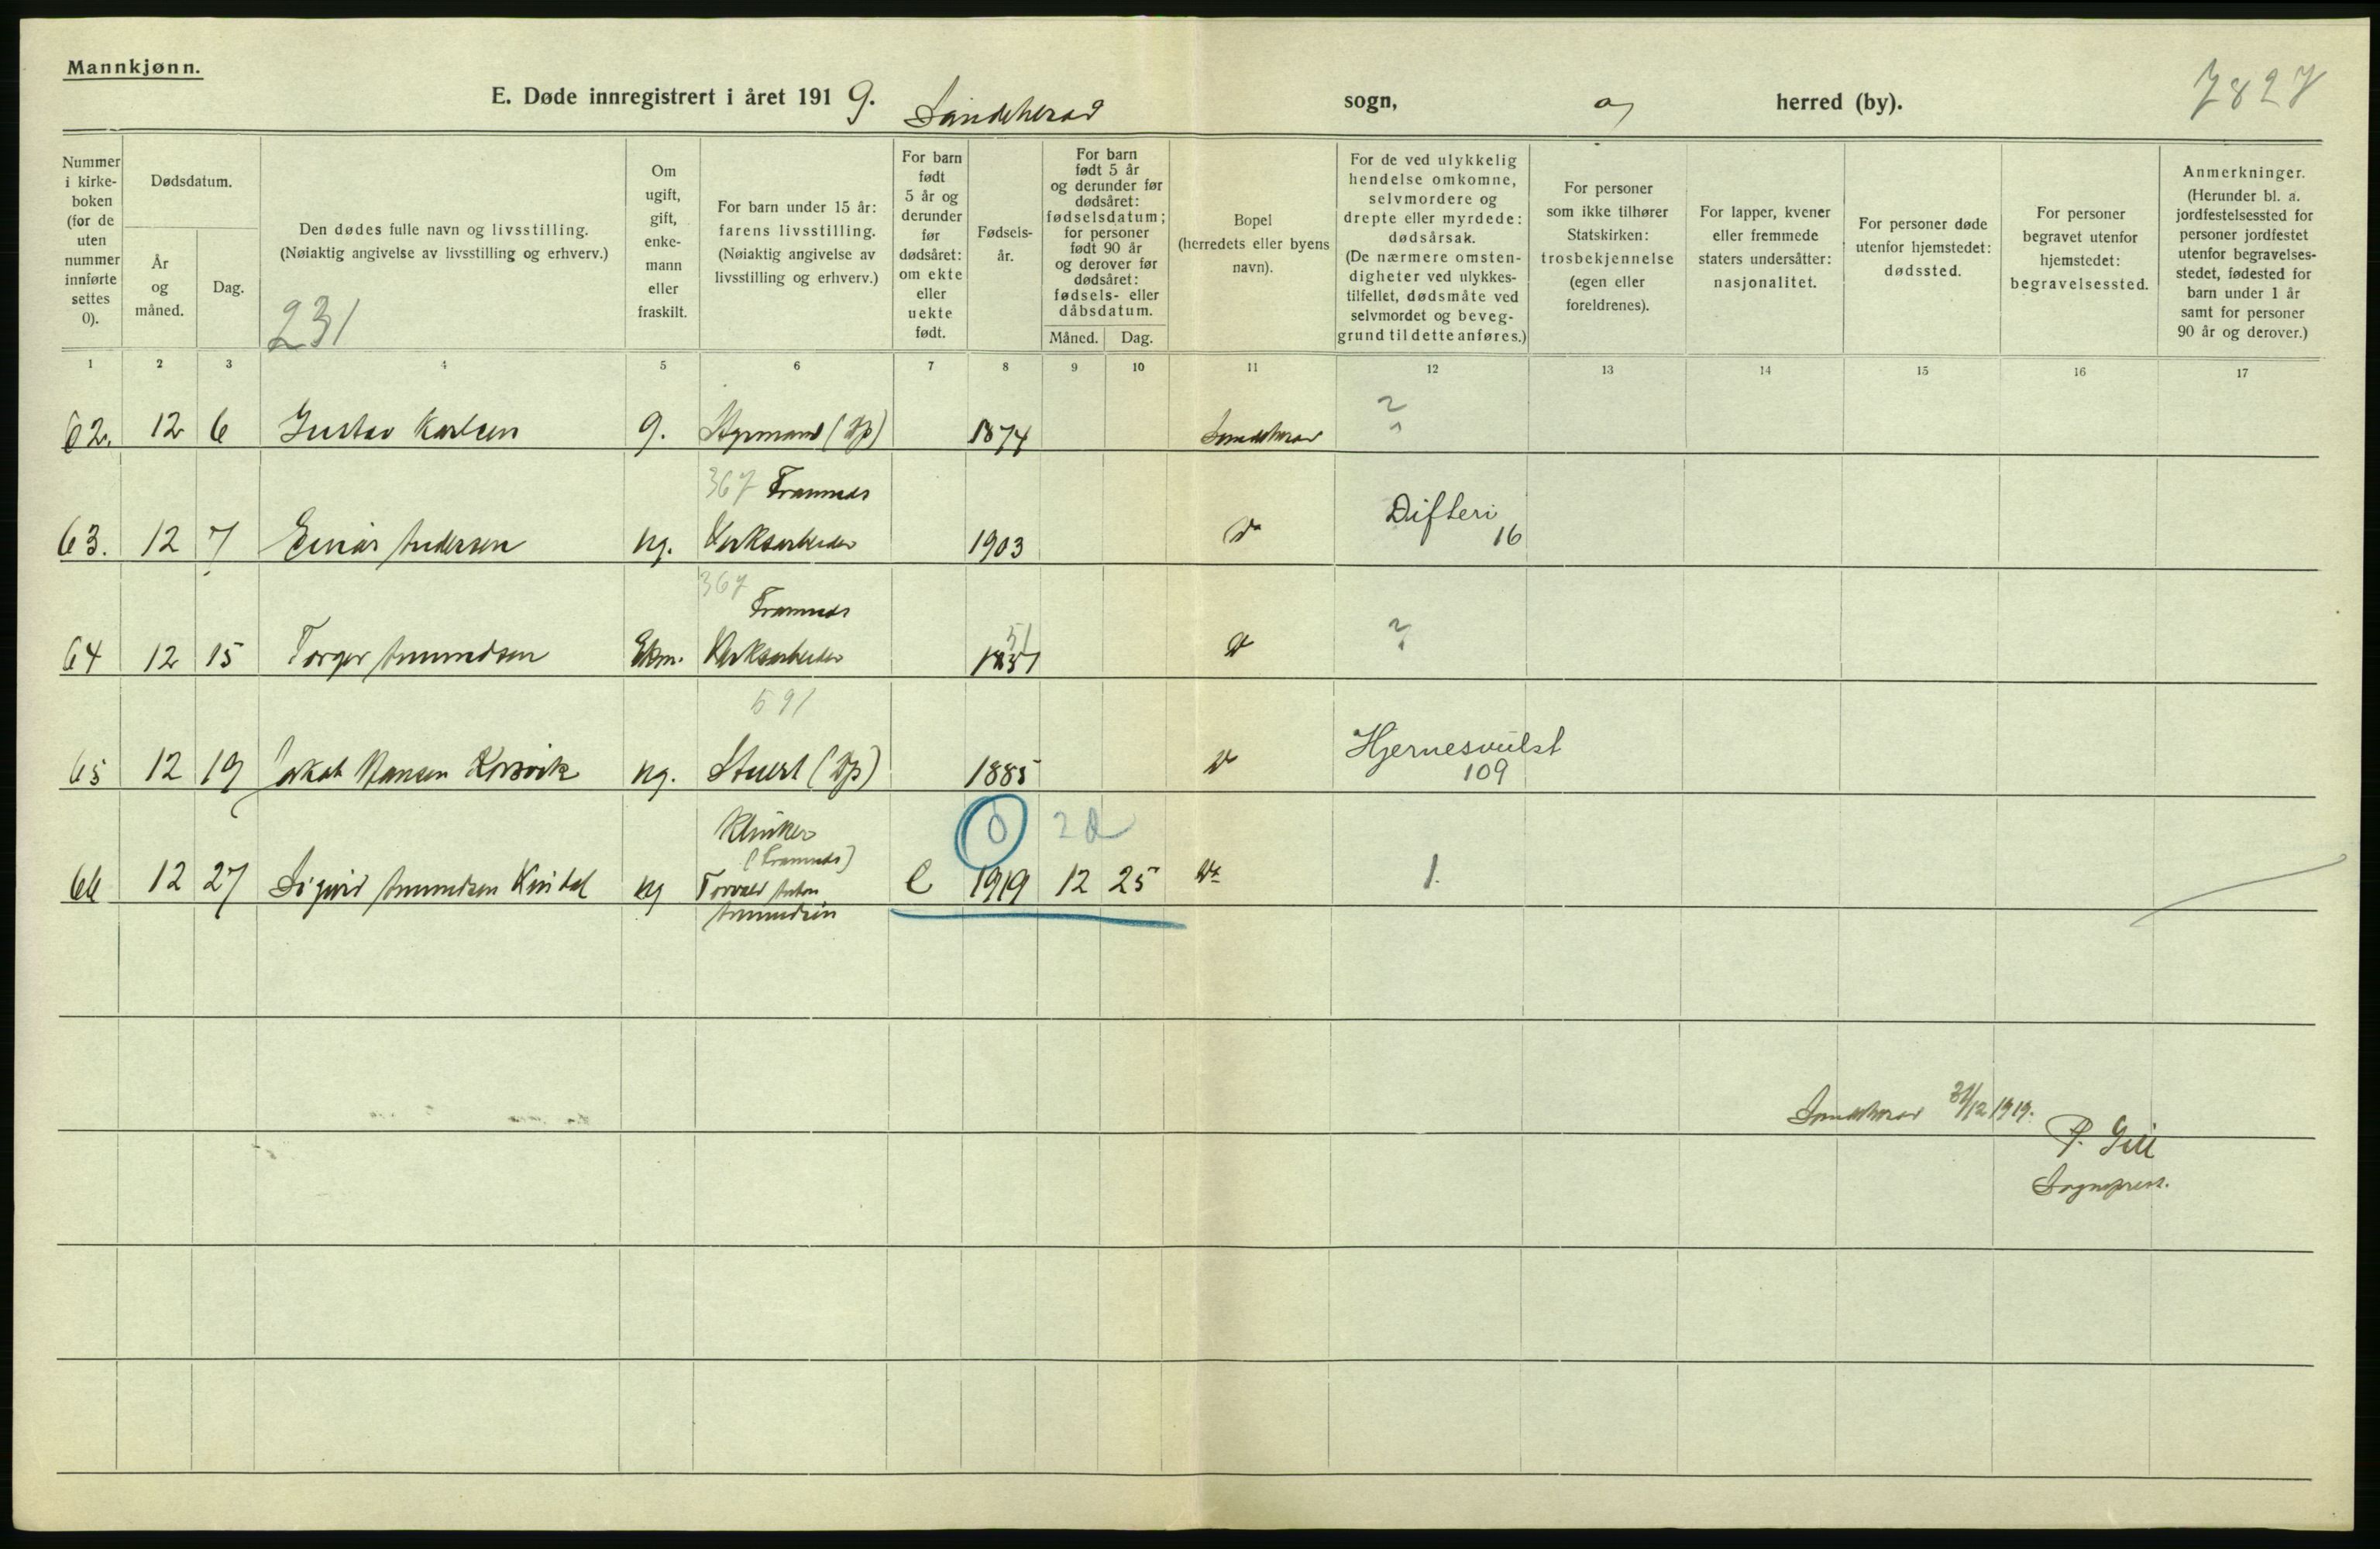 Mannkjønn.
E. Døde innregistrert i året 1919. Sandeherad sogn, herred (by).
7827
Nummer i kirke-boken (for de uten nummer innførte settes 0).
Dødsdatum.
År og måned.
Dag.
Den dødes fulle navn og livsstilling.
(Nøiaktig angivelse av livsstilling og erhverv.)
231
Om ugift, gift, enke-mann eller fraskilt.
For barn under 15 år: farens livsstilling.
(Nøiaktig angivelse av livsstilling og erhverv.)
For barn født 5 år og derunder før dødsåret: om ekte eller uekte født.
Fødsels-år.
For barn født 5 år og derunder før dødsåret: fødselsdatum; for personer født 90 år og derover før dødsåret: fødsels- eller dåbsdatum.
Måned. Dag.
Bopel (herredets eller byens navn).
For de ved ulykkelig hendelse omkomne, selvmordere og drepte eller myrdede: dødsårsak.
(De nærmere omsten-digheter ved ulykkes-tilfellet, dødsmåte ved selvmordet og beveg-grund til dette anføres.)
For personer som ikke tilhører Statskirken: trosbekjennelse (egen eller foreldrenes).
For lapper, kvener eller fremmede staters undersåtter: nasjonalitet.
For personer døde utenfor hjemstedet: dødssted.
For personer begravet utenfor hjemstedet: begravelsessted.
Anmerkninger.
(Herunder bl. a. jordfestelsessted for personer jordfestet utenfor begravelses-stedet, fødested for barn under 1 år samt for personer 90 år og derover.)
1 2 3 4 5 6 7 8 9 10 11 12 13 14 15 16 17
62. 12 6 Gustav Karlsen g. Styrmand 1874 Sandeherad ?
367 Framnes
63. 12 7 Einar Andersen ug. Verksarbeider 1903 do Difteri 16
367 Framnes
64 12 15 Torger Amundsen Ekm. Verksarbeider 51 do ?
591
65 12 19 Jakob Hansen Korsvik ug. Stuert 1885 do Hjernesvulst 109
Klinker 0 2d
(Framnes)
66 12 27 Sigurd Amundsen ug Torvald Anton Amundsen e 1919 12 25 do 1.
Sandeherad 31/12 1919.
P. Gill
Sogneprest.